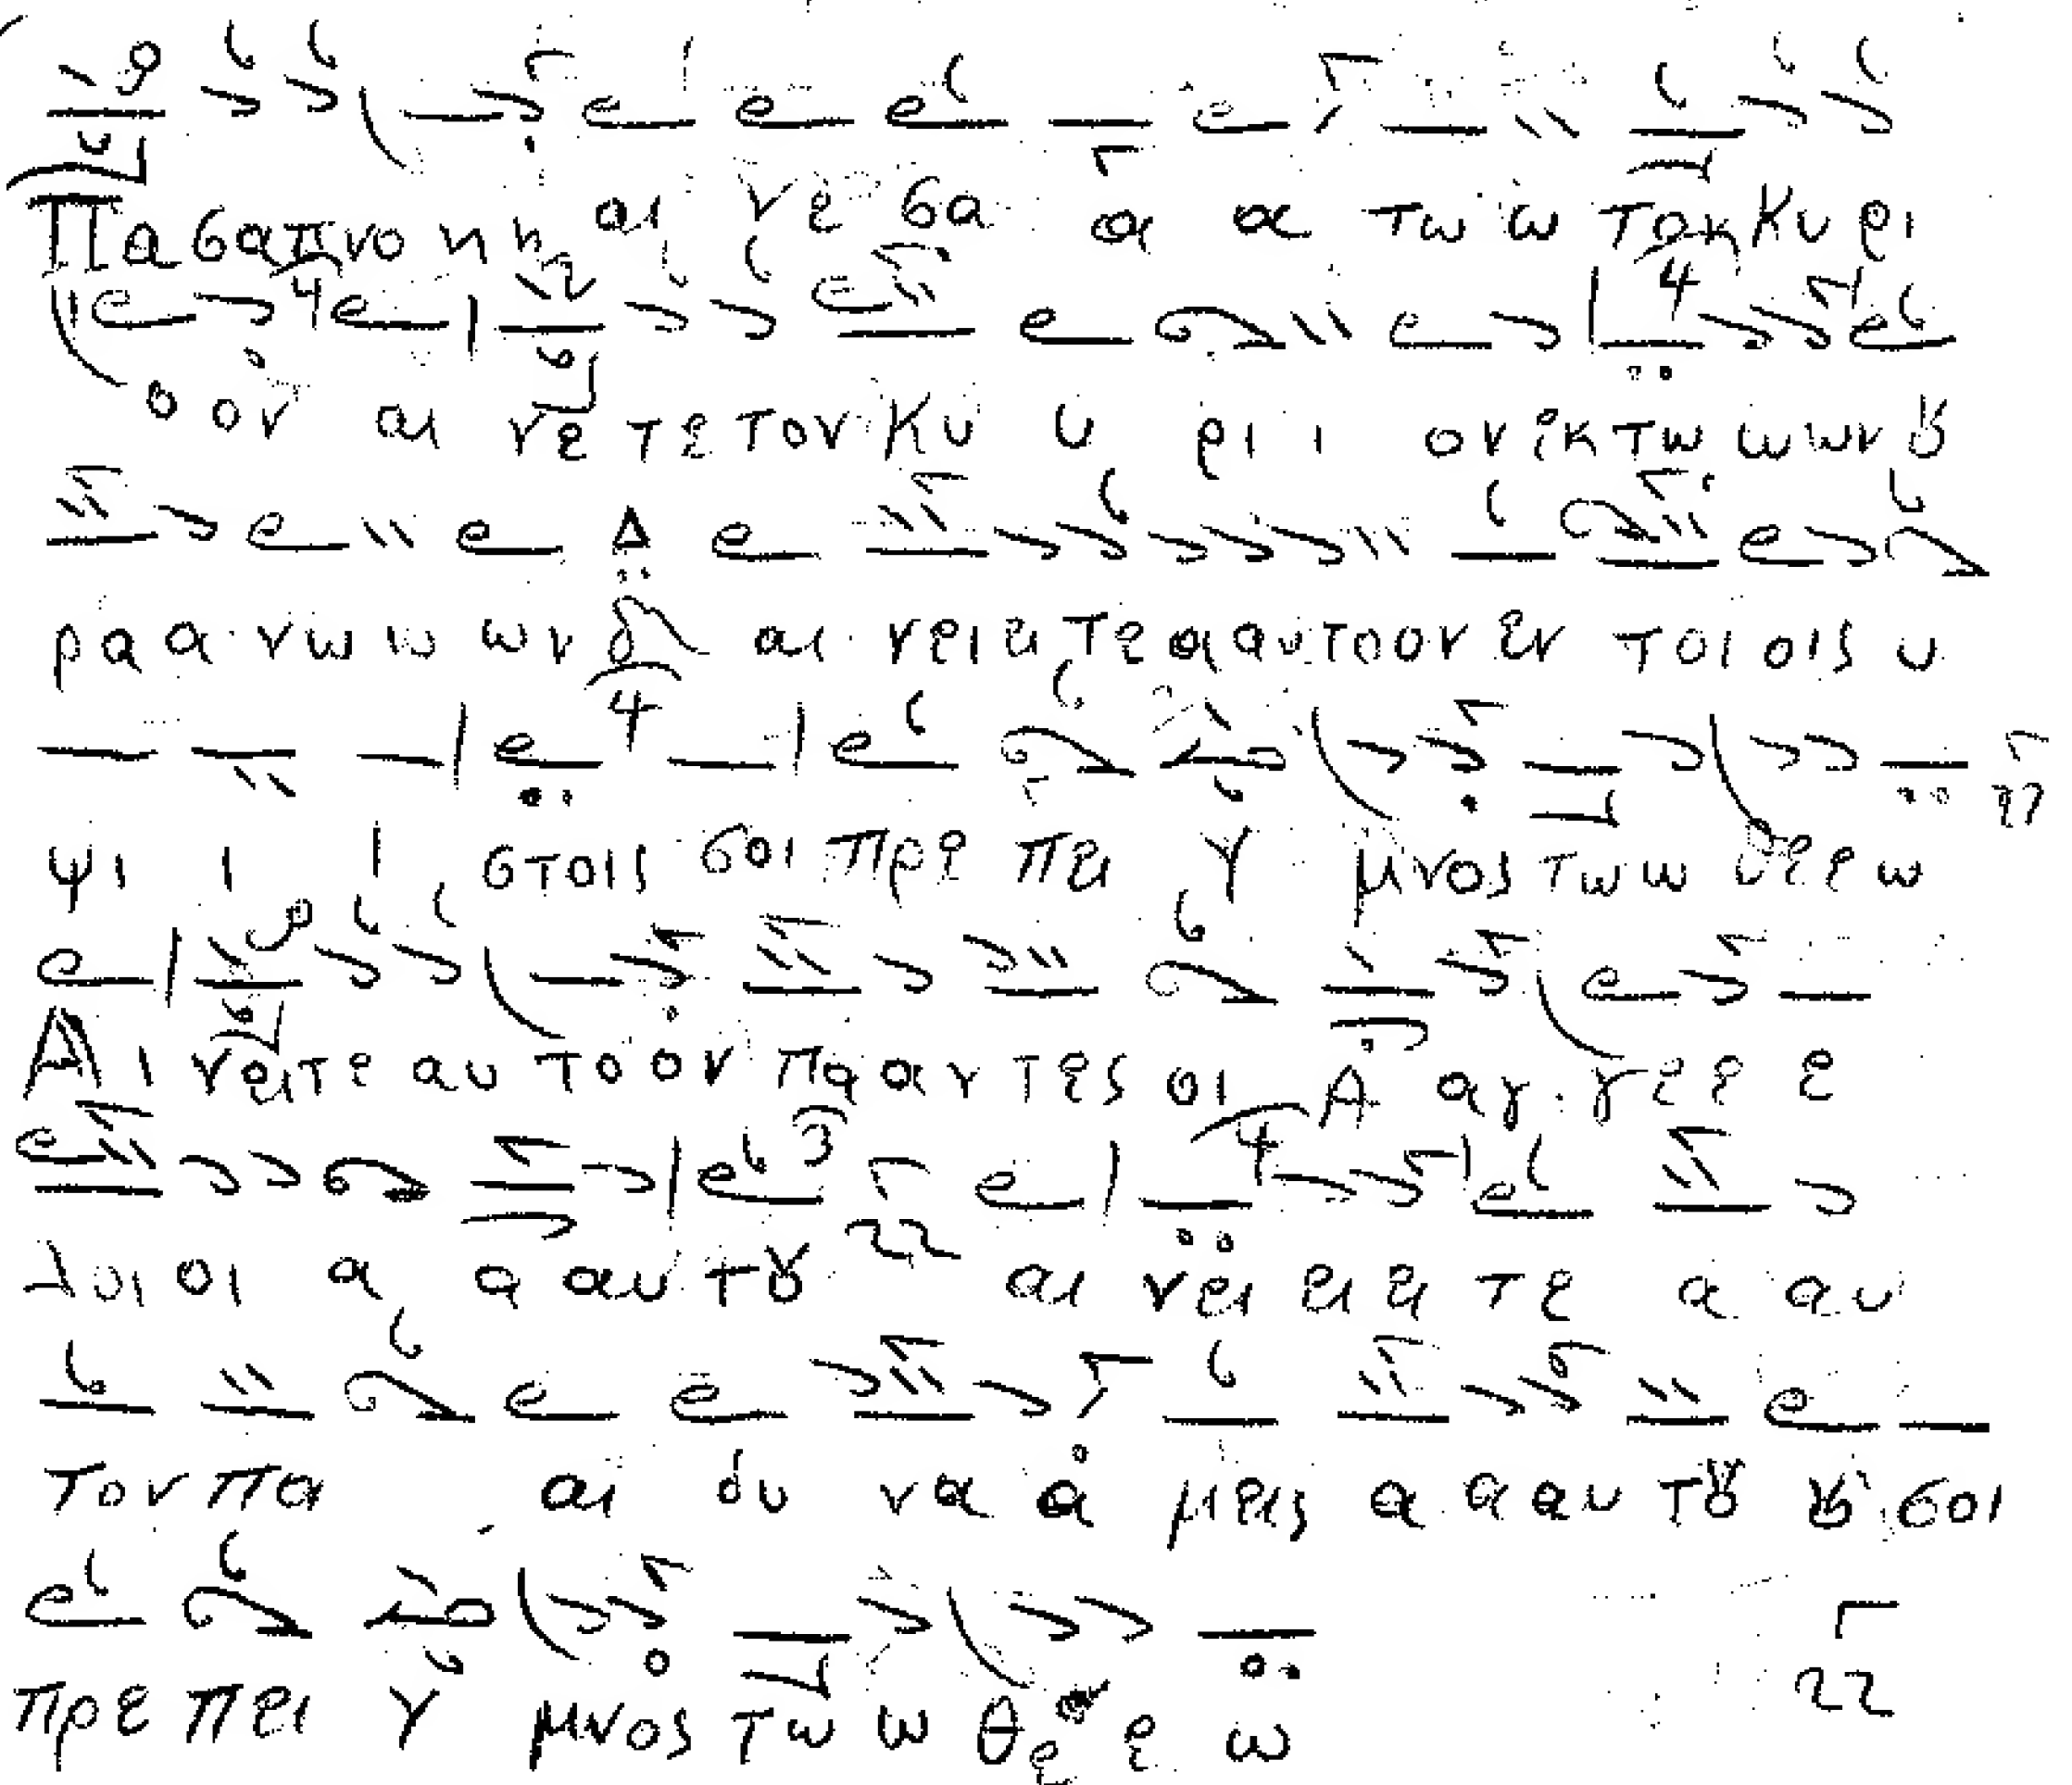 Πασαπνοη η αι νε σα α α τω ω τον Κυ ρι
ο ον αι νε τε τον Κυ υ ρι ι ον εκ τω ω ων ȣ
ρα α α νω ω ων δ αι νει ει τε α αυ το ον εν τοι οις υ
ψι ι ι στοις σοι πρε πει Υ μνος τω ω θε ε ω
Α ι νειτε αυ το ον πα αν τες οι Α αγ γε ε ε
λοι οι α α αυ τȣ αι νει ει ει τε α αυ
τον πα αι δυ να α μεις α α αυ τȣ ȣ σοι
πρε πει Υ μνος τω ω θε ε ω